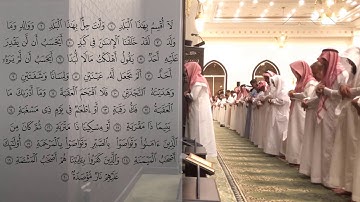 لَا أُقْسِمُ بِهَٰذَا الْبَلَدِ ۝ وَأَنتَ حِلٌّ بِهَٰذَا الْبَلَدِ ۝ وَوَالِدٍ وَمَا
وَلَدَ ۝ لَقَدْ خَلَقْنَا الْإِنسَٰنَ فِي كَبَدٍ ۝ أَيَحْسَبُ أَن لَّن يَقْدِرَ
عَلَيْهِ أَحَدٌ ۝ يَقُولُ أَهْلَكْتُ مَالًا لُّبَدًا ۝ أَيَحْسَبُ أَن لَّمْ يَرَهُ
أَحَدٌ ۝ أَلَمْ نَجْعَل لَّهُ عَيْنَيْنِ ۝ وَلِسَانًا وَشَفَتَيْنِ ۝
وَهَدَيْنَٰهُ النَّجْدَيْنِ ۝ فَلَا اقْتَحَمَ الْعَقَبَةَ ۝ وَمَا أَدْرَىٰكَ مَا
الْعَقَبَةُ ۝ فَكُّ رَقَبَةٍ ۝ أَوْ إِطْعَٰمٌ فِي يَوْمٍ ذِي مَسْغَبَةٍ ۝
يَتِيمًا ذَا مَقْرَبَةٍ ۝ أَوْ مِسْكِينًا ذَا مَتْرَبَةٍ ۝ ثُمَّ كَانَ مِنَ
الَّذِينَ ءَامَنُوا وَتَوَاصَوْا بِالصَّبْرِ وَتَوَاصَوْا بِالْمَرْحَمَةِ ۝ أُولَٰئِكَ
أَصْحَٰبُ الْمَيْمَنَةِ ۝ وَالَّذِينَ كَفَرُوا بِـَٔايَٰتِنَا هُمْ أَصْحَٰبُ الْمَشْـَٔمَةِ ۝
عَلَيْهِمْ نَارٌ مُّؤْصَدَةٌ ۝